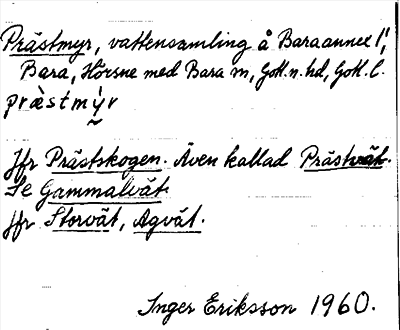 Prästmyr, vattensamling å Baraannex 1¹,
Bara, Hörsne med Bara sn, Gotl. n. hd, Gotl. l.
præ̀stmỳ̱r
Jfr Prästskogen. Även kallad Prästvät.
Se Gammalvät
Jfr Storvät, Agvät.
Inger Eriksson 1960.